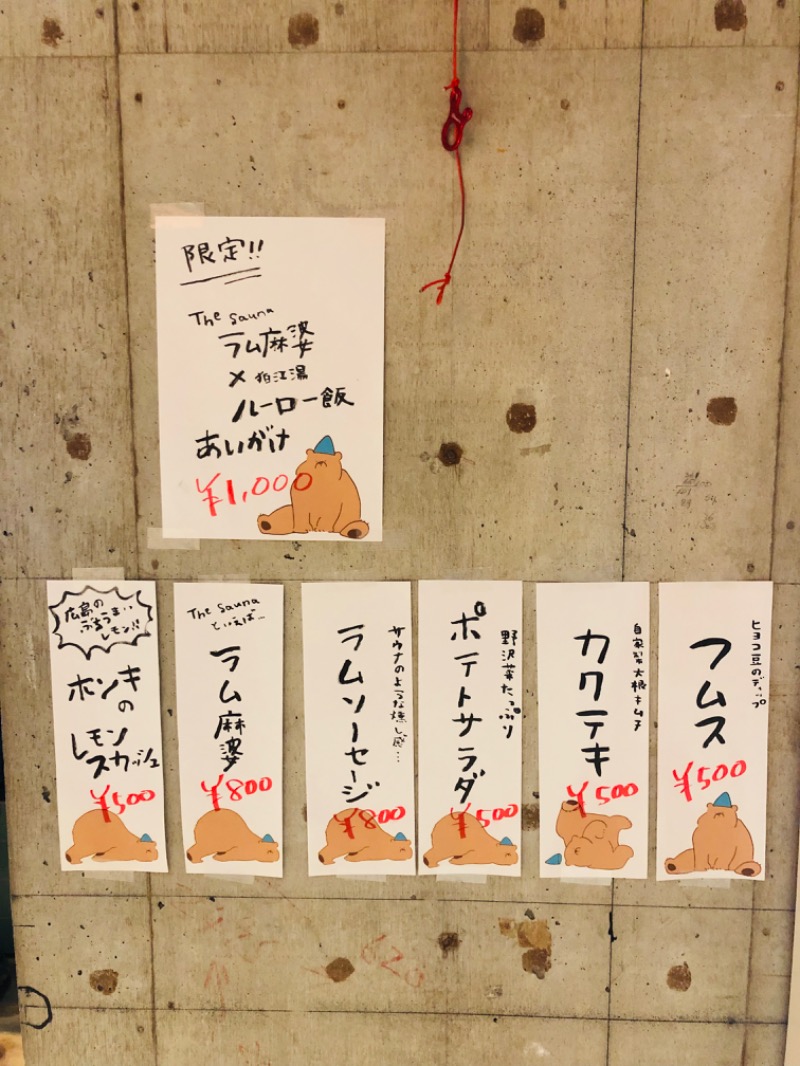 限定!!
The sauna
ラム麻婆
× 狛江湯
ルーロー飯
あいがけ
¥1,000
ヒヨコ豆のディップ
フムス
¥500
自家製大根キムチ
カクテキ
¥500
野沢菜たっぷり
ポテトサラダ
¥500
サウナのような燻し感…
ラムソーセージ
¥800
The sauna
といえば…
ラム麻婆
¥800
広島の
ぶちうまい
レモン!!
ホンキ
の
レモン
スカッシュ
¥500